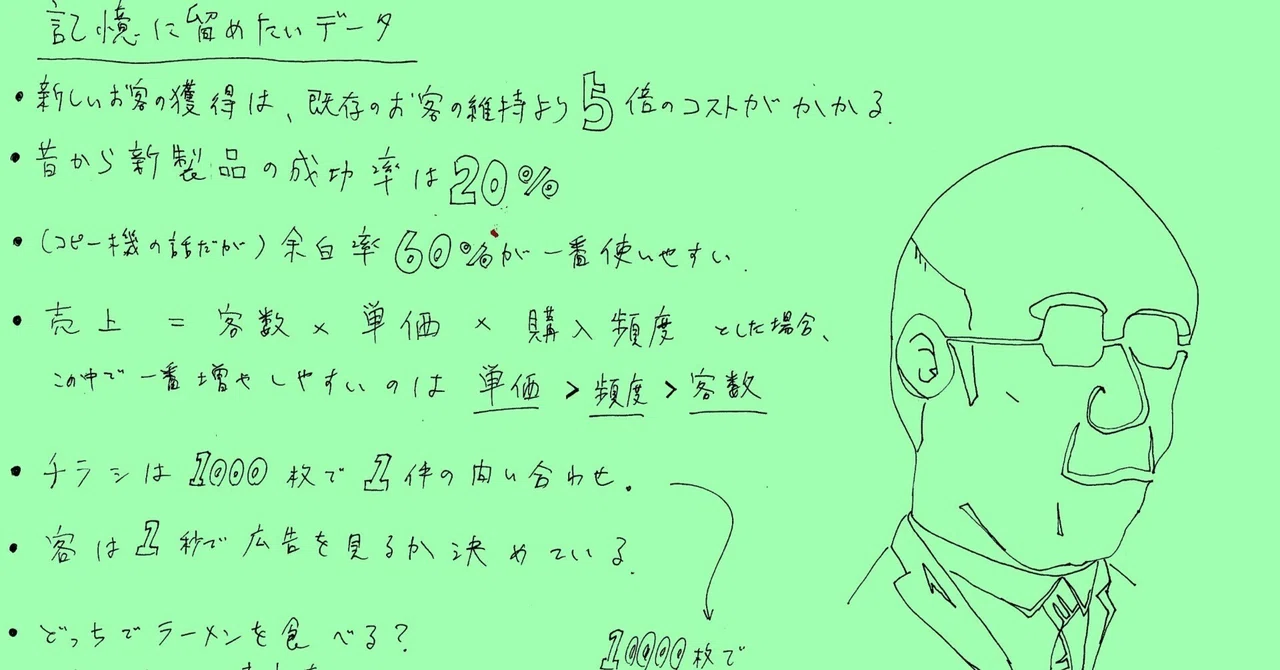 記憶に留めたいデータ
• 新しいお客の獲得は、既存のお客の維持より5倍のコストがかかる.
• 昔から新製品の成功率は20%
• (コピー機の話だが) 余白率60%が一番使いやすい.
• 売上 = 客数 × 単価 × 購入頻度 とした場合、
この中で一番増やしやすいのは 単価 > 頻度 > 客数
• チラシは1000枚で1件の問い合わせ.
• 客は1秒で広告を見るか決めている.
• どっちでラーメンを食べる?
10000枚で